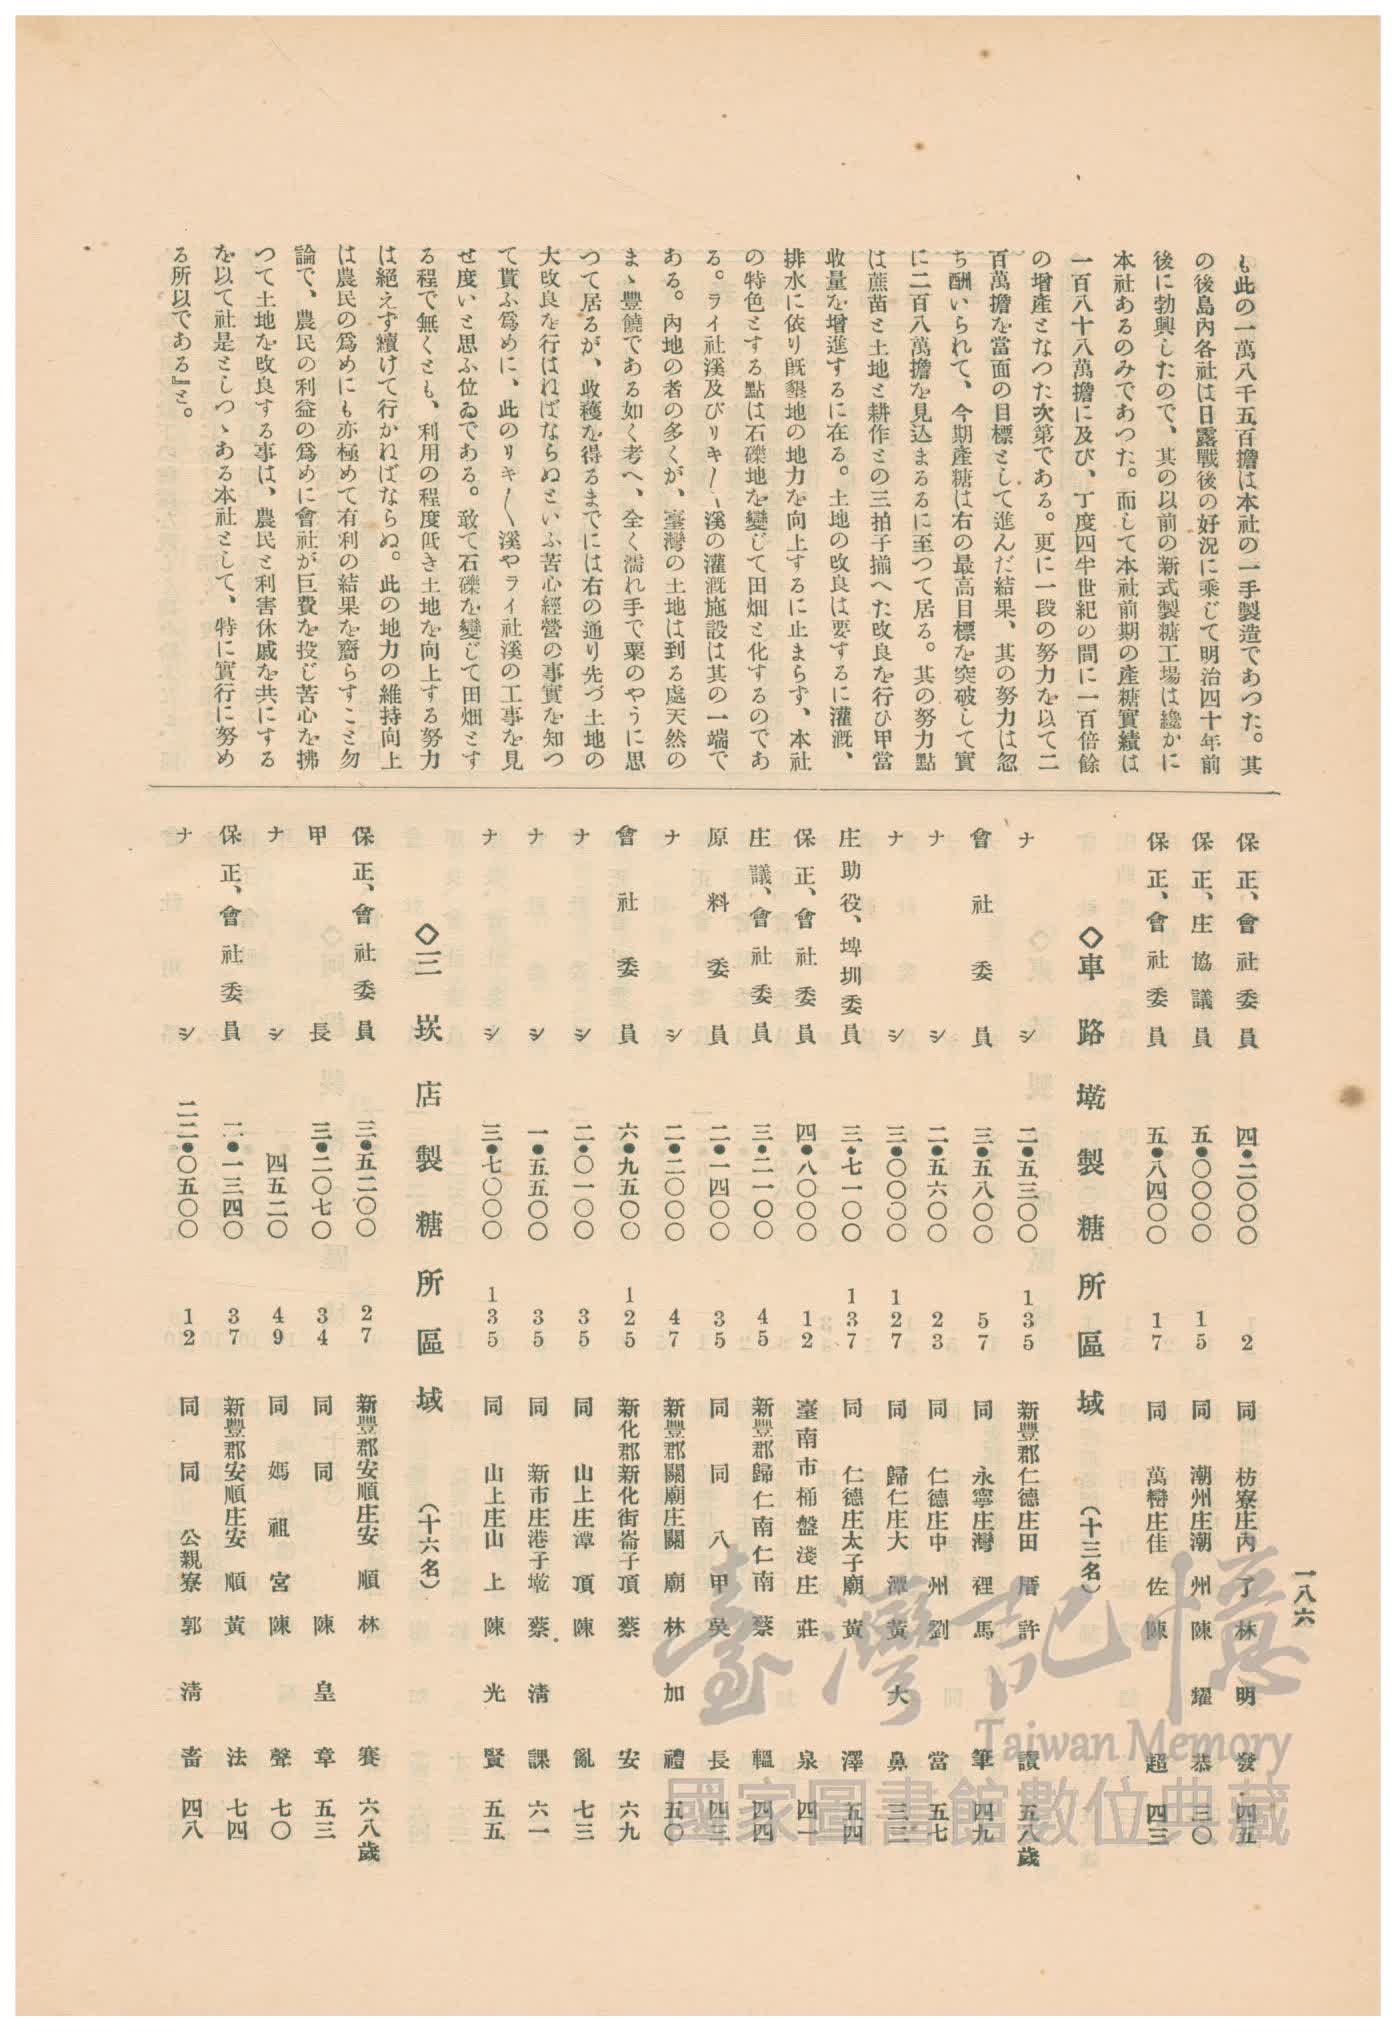 一八六
も此の一萬八千五百擔は本社の一手製造であつた。其
の後島內各社は日露戰後の好況に乘じて明治四十年前
後に勃興したので、其の以前の新式製糖工場は纔かに
本社あるのみであつた。而して本社前期の產糖實績は
一百八十八萬擔に及び、丁度四半世紀の間に一百倍餘
の增產となつた次第である。更に一段の努力を以て二
百萬擔を當面の目標として進んだ結果、其の努力は忽
ち酬いられて、今期產糖は右の最高目標を突破して實
に二百八萬擔を見込まるるに至つて居る。其の努力點
は蔗苗と土地と耕作との三拍子揃へた改良を行ひ甲當
收量を增進するに在る。土地の改良は要するに灌漑、
排水に依り旣墾地の地力を向上するに止まらず、本社
の特色とする點は石礫地を變じて田畑と化するのであ
る。ライ社溪及びリキ〳〵溪の灌漑施設は其の一端で
ある。內地の者の多くが、臺灣の土地は到る處天然の
まゝ豐饒である如く考へ、全く濡れ手で粟のやうに思
つて居るが、收穫を得るまでには右の通り先づ土地の
大改良を行はねばならぬといふ苦心經營の事實を知つ
て貰ふ爲めに、此のリキ〳〵溪やライ社溪の工事を見
せ度いと思ふ位ゐである。敢て石礫を變じて田畑とす
る程で無くとも、利用の程度低き土地を向上する努力
は絕えず續けて行かねばならぬ。此の地力の維持向上
は農民の爲めにも亦極めて有利の結果を齎らすこと勿
論で、農民の利益の爲めに會社が巨費を投じ苦心を拂
つて土地を改良する事は、農民と利害休戚を共にする
を以て社是としつゝある本社として、特に實行に努め
る所以である』と。
保正、會社委員 四•二〇〇〇 12 同 枋寮庄內了 林明發 四五
保正、庄協議員 五•〇〇〇〇 15 同 潮州庄潮州 陳耀恭 三〇
保正、會社委員 五•八四〇〇 17 同 萬巒庄佳佐 陳超 四三
◇車路墘製糖所區域（十三名）
ナシ 二•五三〇〇 135 新豐郡仁德庄田厝 許讀 五八歲
會社委員 三•五八〇〇 57 同 永寧庄灣裡 馬筆 四九
ナシ 二•五六〇〇 23 同 仁德庄中州 劉當 五七
ナシ 三•〇〇〇〇 127 同 歸仁庄大潭 黃大鼻 三三
庄助役、埤圳委員 三•七一〇〇 137 同 仁德庄太子廟 黃澤 五四
保正、會社委員 四•八〇〇〇 12 臺南市桶盤淺庄 莊泉 四一
庄議、會社委員 三•二一〇〇 45 新豐郡歸仁南仁南 蔡輼 四四
原料委員 二•一四〇〇 35 同 同 八甲 吳長 四三
ナシ 二•二〇〇〇 47 新豐郡關廟庄關廟 林加禮 五〇
會社委員 六•九五〇〇 125 新化郡新化街崙子頂 蔡安 六九
ナシ 二•〇一〇〇 35 同 山上庄潭頂 陳亂 七三
ナシ 一•五五〇〇 35 同 新市庄港子墘 蔡清課 六一
ナシ 三•七〇〇〇 135 同 山上庄山上 陳光賢 五五
◇三崁店製糖所區域（十六名）
保正、會社委員 三•五二〇〇 27 新豐郡安順庄安順 林賽 六八歲
甲長 三•二〇七〇 34 同 同 陳皇章 五三
ナシ 四五二〇 49 同 媽祖宮 陳聲 七〇
保正、會社委員 二•一三四〇 37 新豐郡安順庄安順 黃法 七四
ナシ 二二•〇五〇〇 12 同 同 公親寮 郭清 四八
臺灣記憶
Taiwan Memory
國家圖書館數位典藏